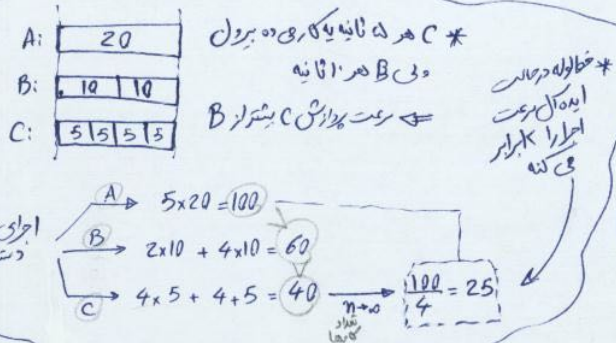 A: 20
B: 10 10
C: 5 5 5 5
* C هر ۵ ثانیه یه کار می ده بیرون
ولی B هر ۱۰ ثانیه
⇐ سرعت پردازش C بیشتر از B
* خط لوله در حالت
ایده آل سرعت
اجرا را k برابر
می کنه
اجرای
A → 5×20 = 100
B → 2×10 + 4×10 = 60
C → 4×5 + 4+5 = 40
n→∞
تعداد
کارها
100/4 = 25